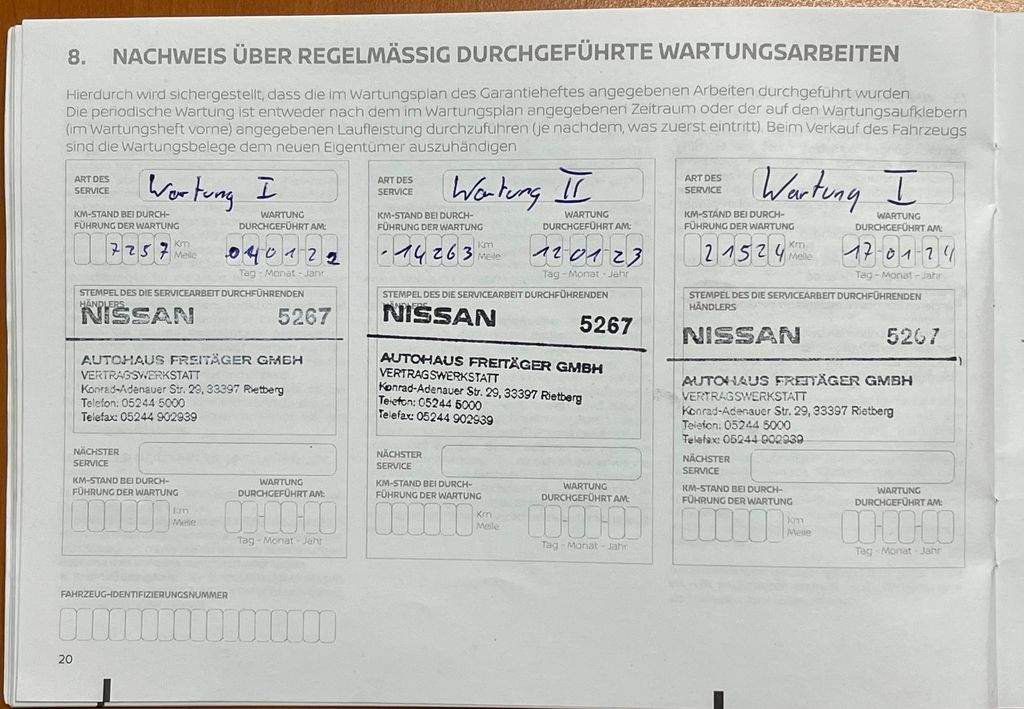 8. NACHWEIS ÜBER REGELMÄSSIG DURCHGEFÜHRTE WARTUNGSARBEITEN
Hierdurch wird sichergestellt, dass die im Wartungsplan des Garantieheftes angegebenen Arbeiten durchgeführt wurden.
Die periodische Wartung ist entweder nach dem im Wartungsplan angegebenen Zeitraum oder der auf den Wartungsaufklebern
(im Wartungsheft vorne) angegebenen Laufleistung durchzuführen (je nachdem, was zuerst eintritt). Beim Verkauf des Fahrzeugs
sind die Wartungsbelege dem neuen Eigentümer auszuhändigen
ART DES
SERVICE
Wartung I
KM-STAND BEI DURCH-
FÜHRUNG DER WARTUNG
WARTUNG
DURCHGEFÜHRT AM:
7257 Km
Meile
04 01 22
Tag - Monat - Jahr
STEMPEL DES DIE SERVICEARBEIT DURCHFÜHRENDEN
HÄNDLERS
NISSAN 5267
AUTOHAUS FREITÄGER GMBH
VERTRAGSWERKSTATT
Konrad-Adenauer Str. 29, 33397 Rietberg
Telefon: 05244 5000
Telefax: 05244 902939
NÄCHSTER
SERVICE
KM-STAND BEI DURCH-
FÜHRUNG DER WARTUNG
WARTUNG
DURCHGEFÜHRT AM:
Km
Meile
Tag - Monat - Jahr
ART DES
SERVICE
Wartung II
KM-STAND BEI DURCH-
FÜHRUNG DER WARTUNG
WARTUNG
DURCHGEFÜHRT AM:
14263 Km
Meile
12-01-23
Tag - Monat - Jahr
STEMPEL DES DIE SERVICEARBEIT DURCHFÜHRENDEN
HÄNDLERS
NISSAN 5267
AUTOHAUS FREITÄGER GMBH
VERTRAGSWERKSTATT
Konrad-Adenauer Str. 29, 33397 Rietberg
Telefon: 05244 5000
Telefax: 05244 902939
NÄCHSTER
SERVICE
KM-STAND BEI DURCH-
FÜHRUNG DER WARTUNG
WARTUNG
DURCHGEFÜHRT AM:
Km
Meile
Tag - Monat - Jahr
ART DES
SERVICE
Wartung I
KM-STAND BEI DURCH-
FÜHRUNG DER WARTUNG
WARTUNG
DURCHGEFÜHRT AM:
21524 Km
Meile
17-01-24
Tag - Monat - Jahr
STEMPEL DES DIE SERVICEARBEIT DURCHFÜHRENDEN
HÄNDLERS
NISSAN 5267
AUTOHAUS FREITÄGER GMBH
VERTRAGSWERKSTATT
Konrad-Adenauer Str. 29, 33397 Rietberg
Telefon: 05244 5000
Telefax: 05244 902939
NÄCHSTER
SERVICE
KM-STAND BEI DURCH-
FÜHRUNG DER WARTUNG
WARTUNG
DURCHGEFÜHRT AM:
Km
Meile
Tag - Monat - Jahr
FAHRZEUG-IDENTIFIZIERUNGSNUMMER
20